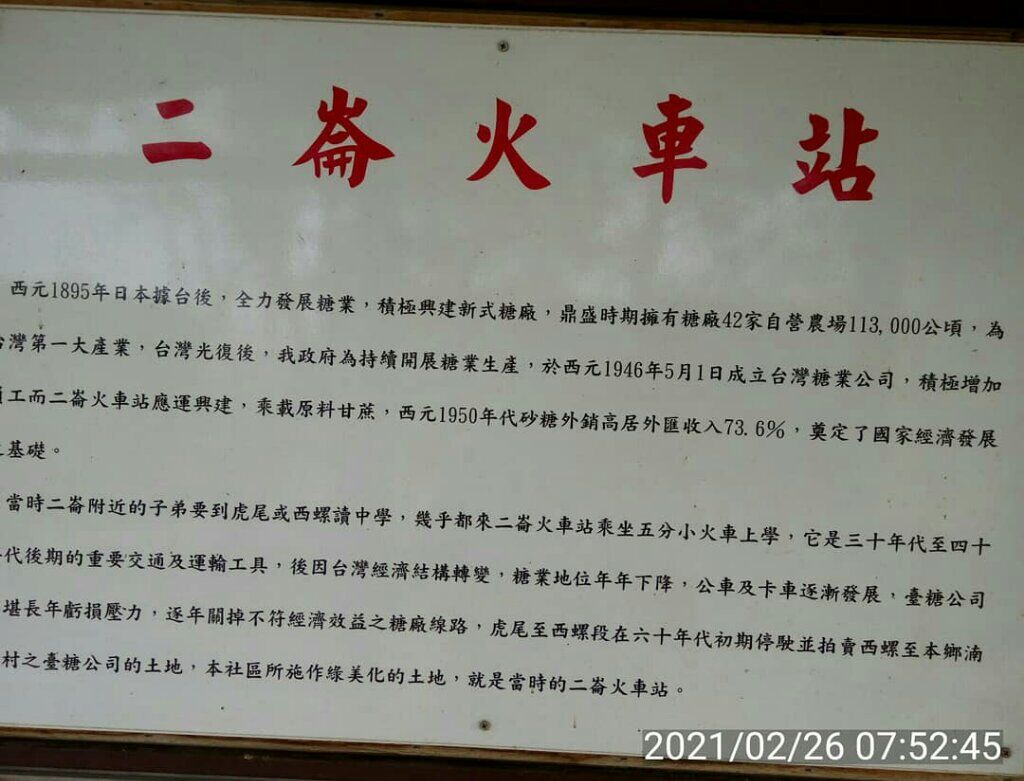 二崙火車站
西元1895年日本據台後，全力發展糖業，積極興建新式糖廠，鼎盛時期擁有糖廠42家自營農場113,000公頃，為
台灣第一大產業，台灣光復後，我政府為持續開展糖業生產，於西元1946年5月1日成立台灣糖業公司，積極增加
員工而二崙火車站應運興建，乘載原料甘蔗，西元1950年代砂糖外銷高居外匯收入73.6%，奠定了國家經濟發展
之基礎。
當時二崙附近的子弟要到虎尾或西螺讀中學，幾乎都來二崙火車站乘坐五分小火車上學，它是三十年代至四十
年代後期的重要交通及運輸工具，後因台灣經濟結構轉變，糖業地位年年下降，公車及卡車逐漸發展，臺糖公司
堪長年虧損壓力，逐年關掉不符經濟效益之糖廠線路，虎尾至西螺段在六十年代初期停駛並拍賣西螺至本鄉湳
村之臺糖公司的土地，本社區所施作綠美化的土地，就是當時的二崙火車站。
2021/02/26 07:52:45